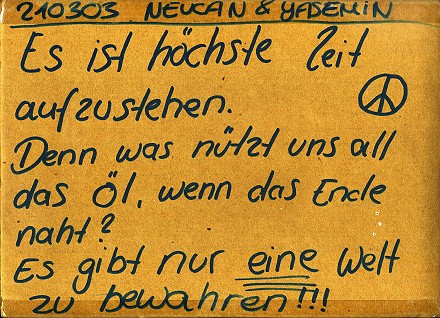 210303 NEVCAN & YASEMIN
Es ist höchste Zeit
aufzustehen.
Denn was nützt uns all
das Öl, wenn das Ende
naht?
Es gibt nur eine Welt
zu bewahren!!!